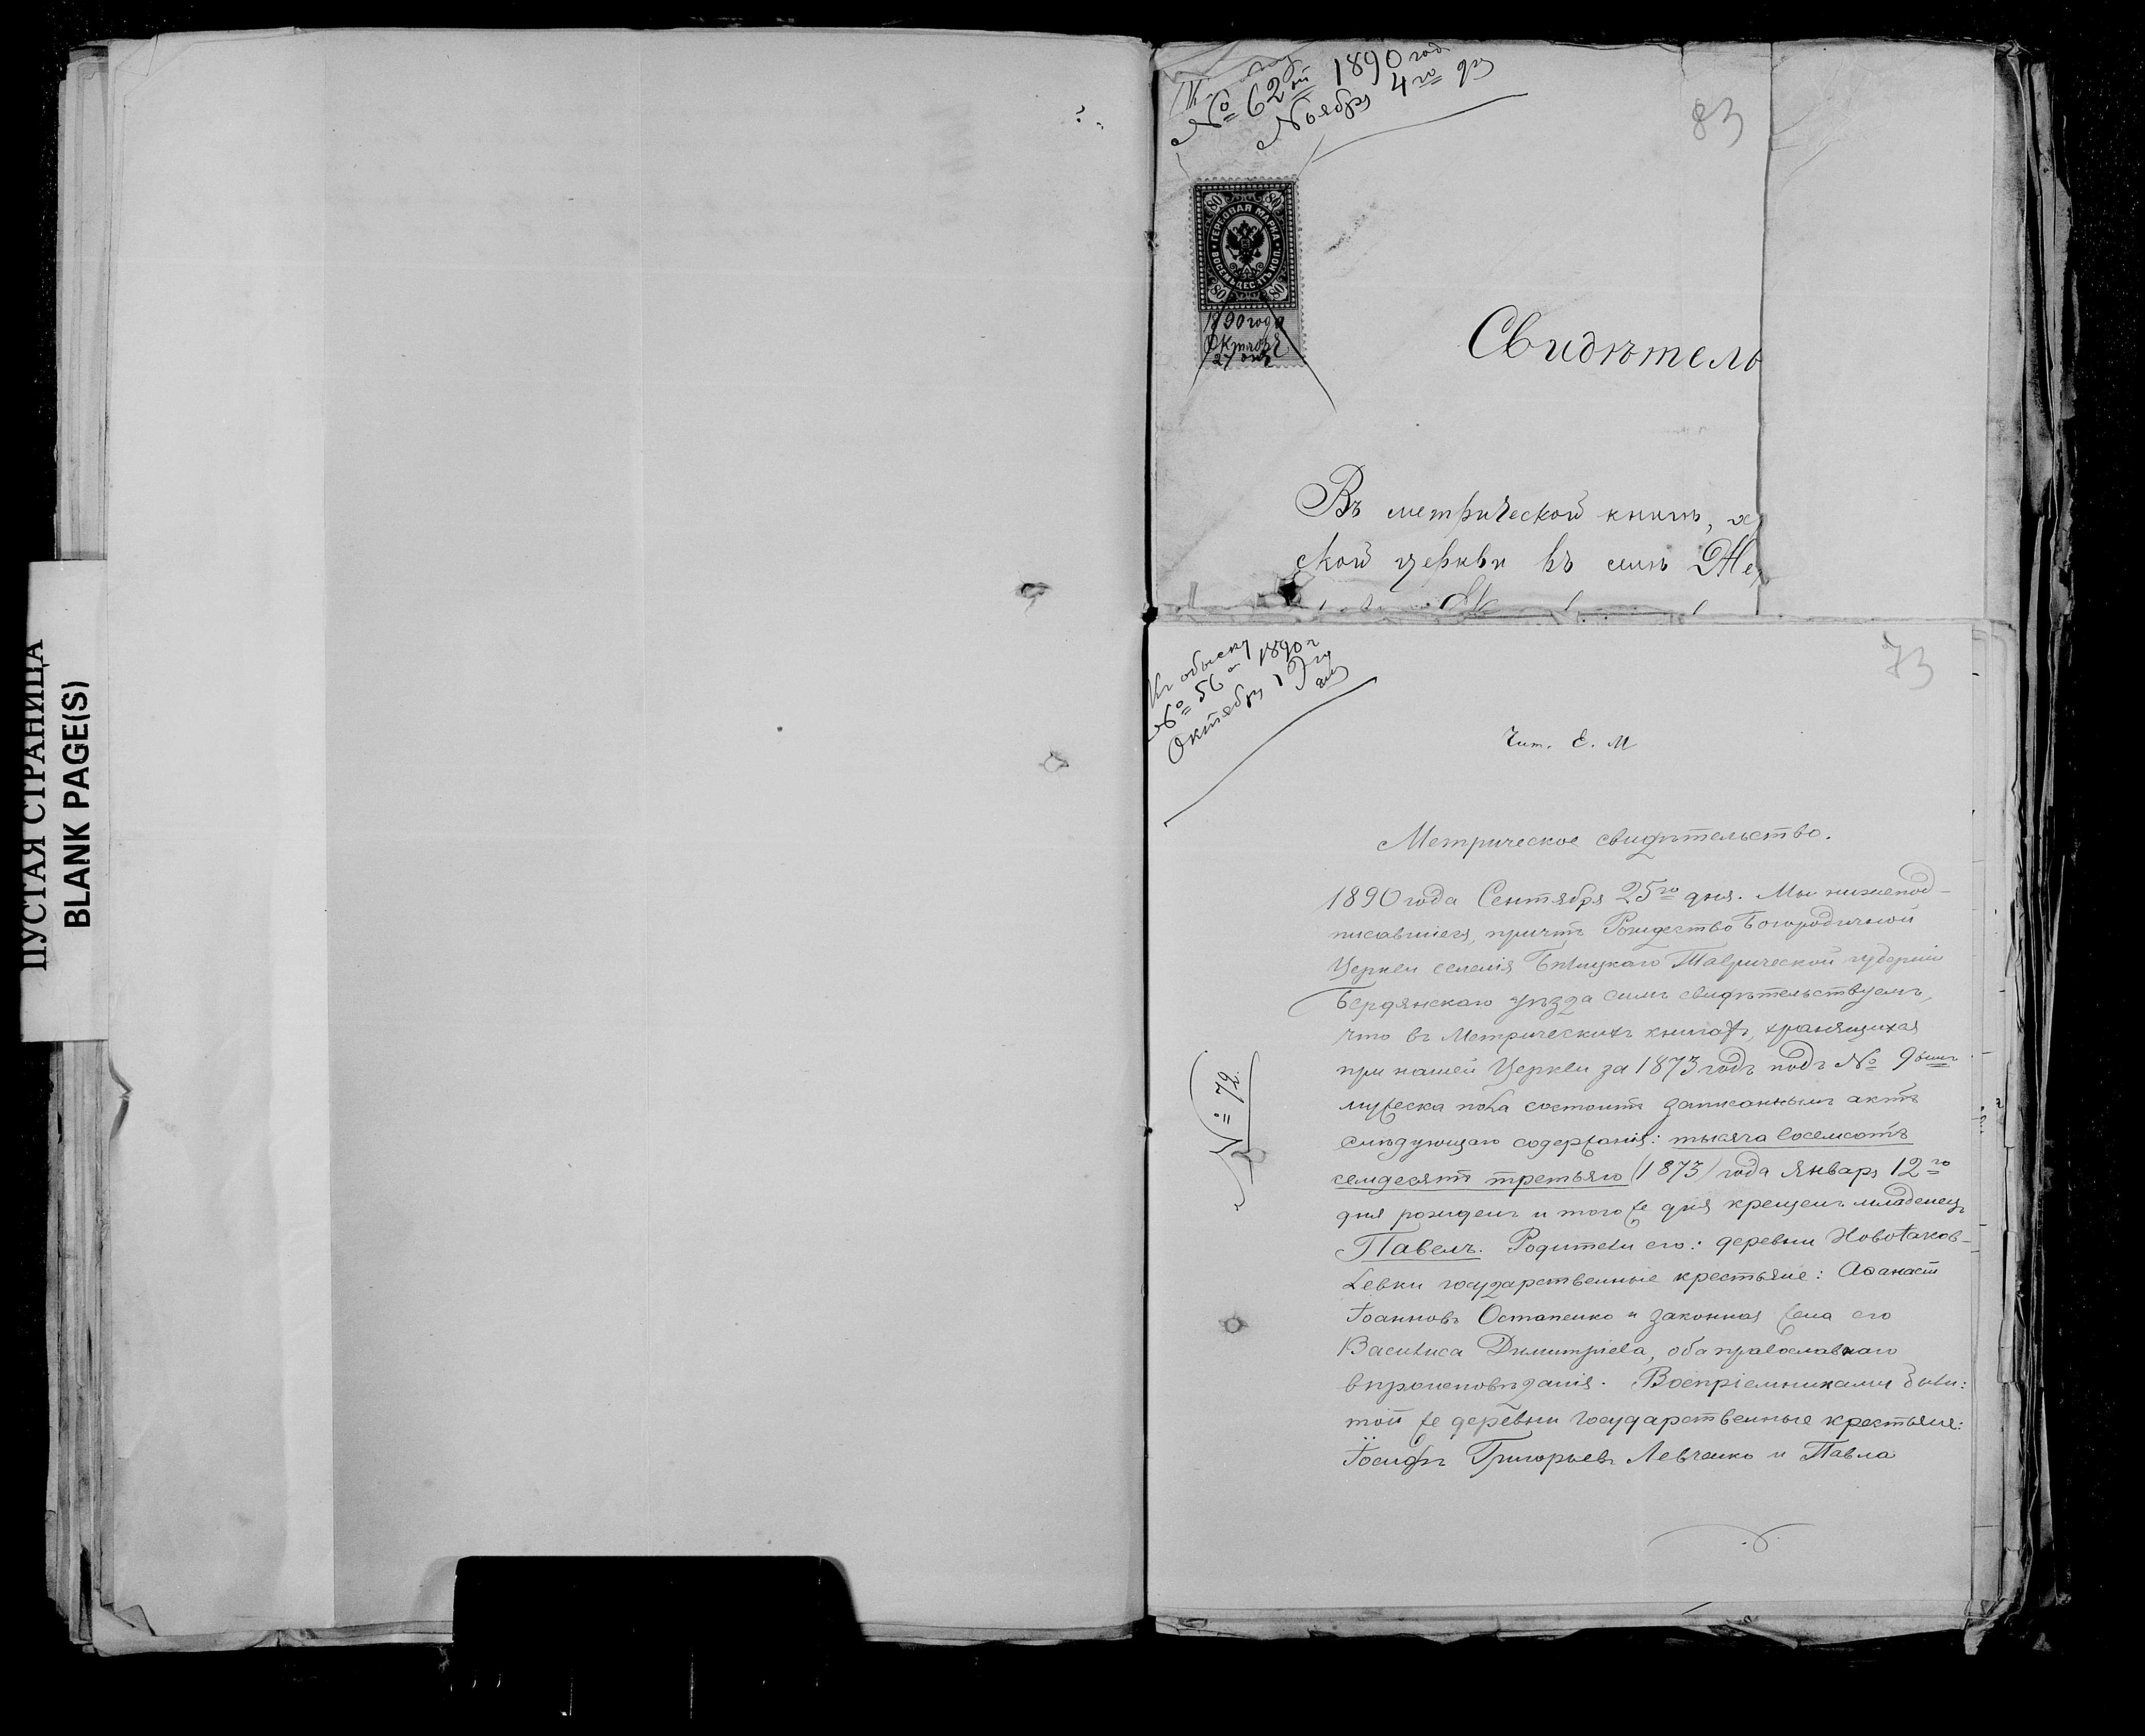 ПУСТАЯ СТРАНИЦА
BLANK PAGE(S)
№ 62й 1890 год
Ноября 4го дня
83
80 80
ГЕРБОВАЯ МАРКА
ВОСЕМЬДЕСЯТЪ КОП.
80 80
1890 года
Октября
27 дня
Свидѣтель
Въ метрической книгѣ,
ской церкви въ селѣ
Къ обыску
№ 56 1890 г
Октября 19го
дня
73
Метрическое свидѣтельство.
1890 года Сентября 25го дня. Мы нижепод-
писавшіеся, причтъ Рождество Богородичной
Церкви селенія Бѣлицкаго Таврической губерніи
Бердянскаго уѣзда симъ свидѣтельствуемъ,
что въ Метрическихъ книгахъ, хранящихся
при нашей Церкви за 1873 годъ подъ № 9ымъ
мужеска пола состоитъ записаннымъ актъ
слѣдующаго содержанія: тысяча восемсотъ
семдесятъ третьяго (1873) года Января 12го
дня рожденъ и того же дня крещенъ младенецъ
Павелъ. Родители его: деревни Новоіаков-
левки государственные крестьяне: Аѳанасій
Іоанновъ Остапенко и законная жена его
Василиса Димитріева, оба православнаго
вѣроисповѣданія. Воспріемниками были:
той же деревни государственные крестьяне:
Іосифъ Григорьевъ Левченко и Павла
№ 72